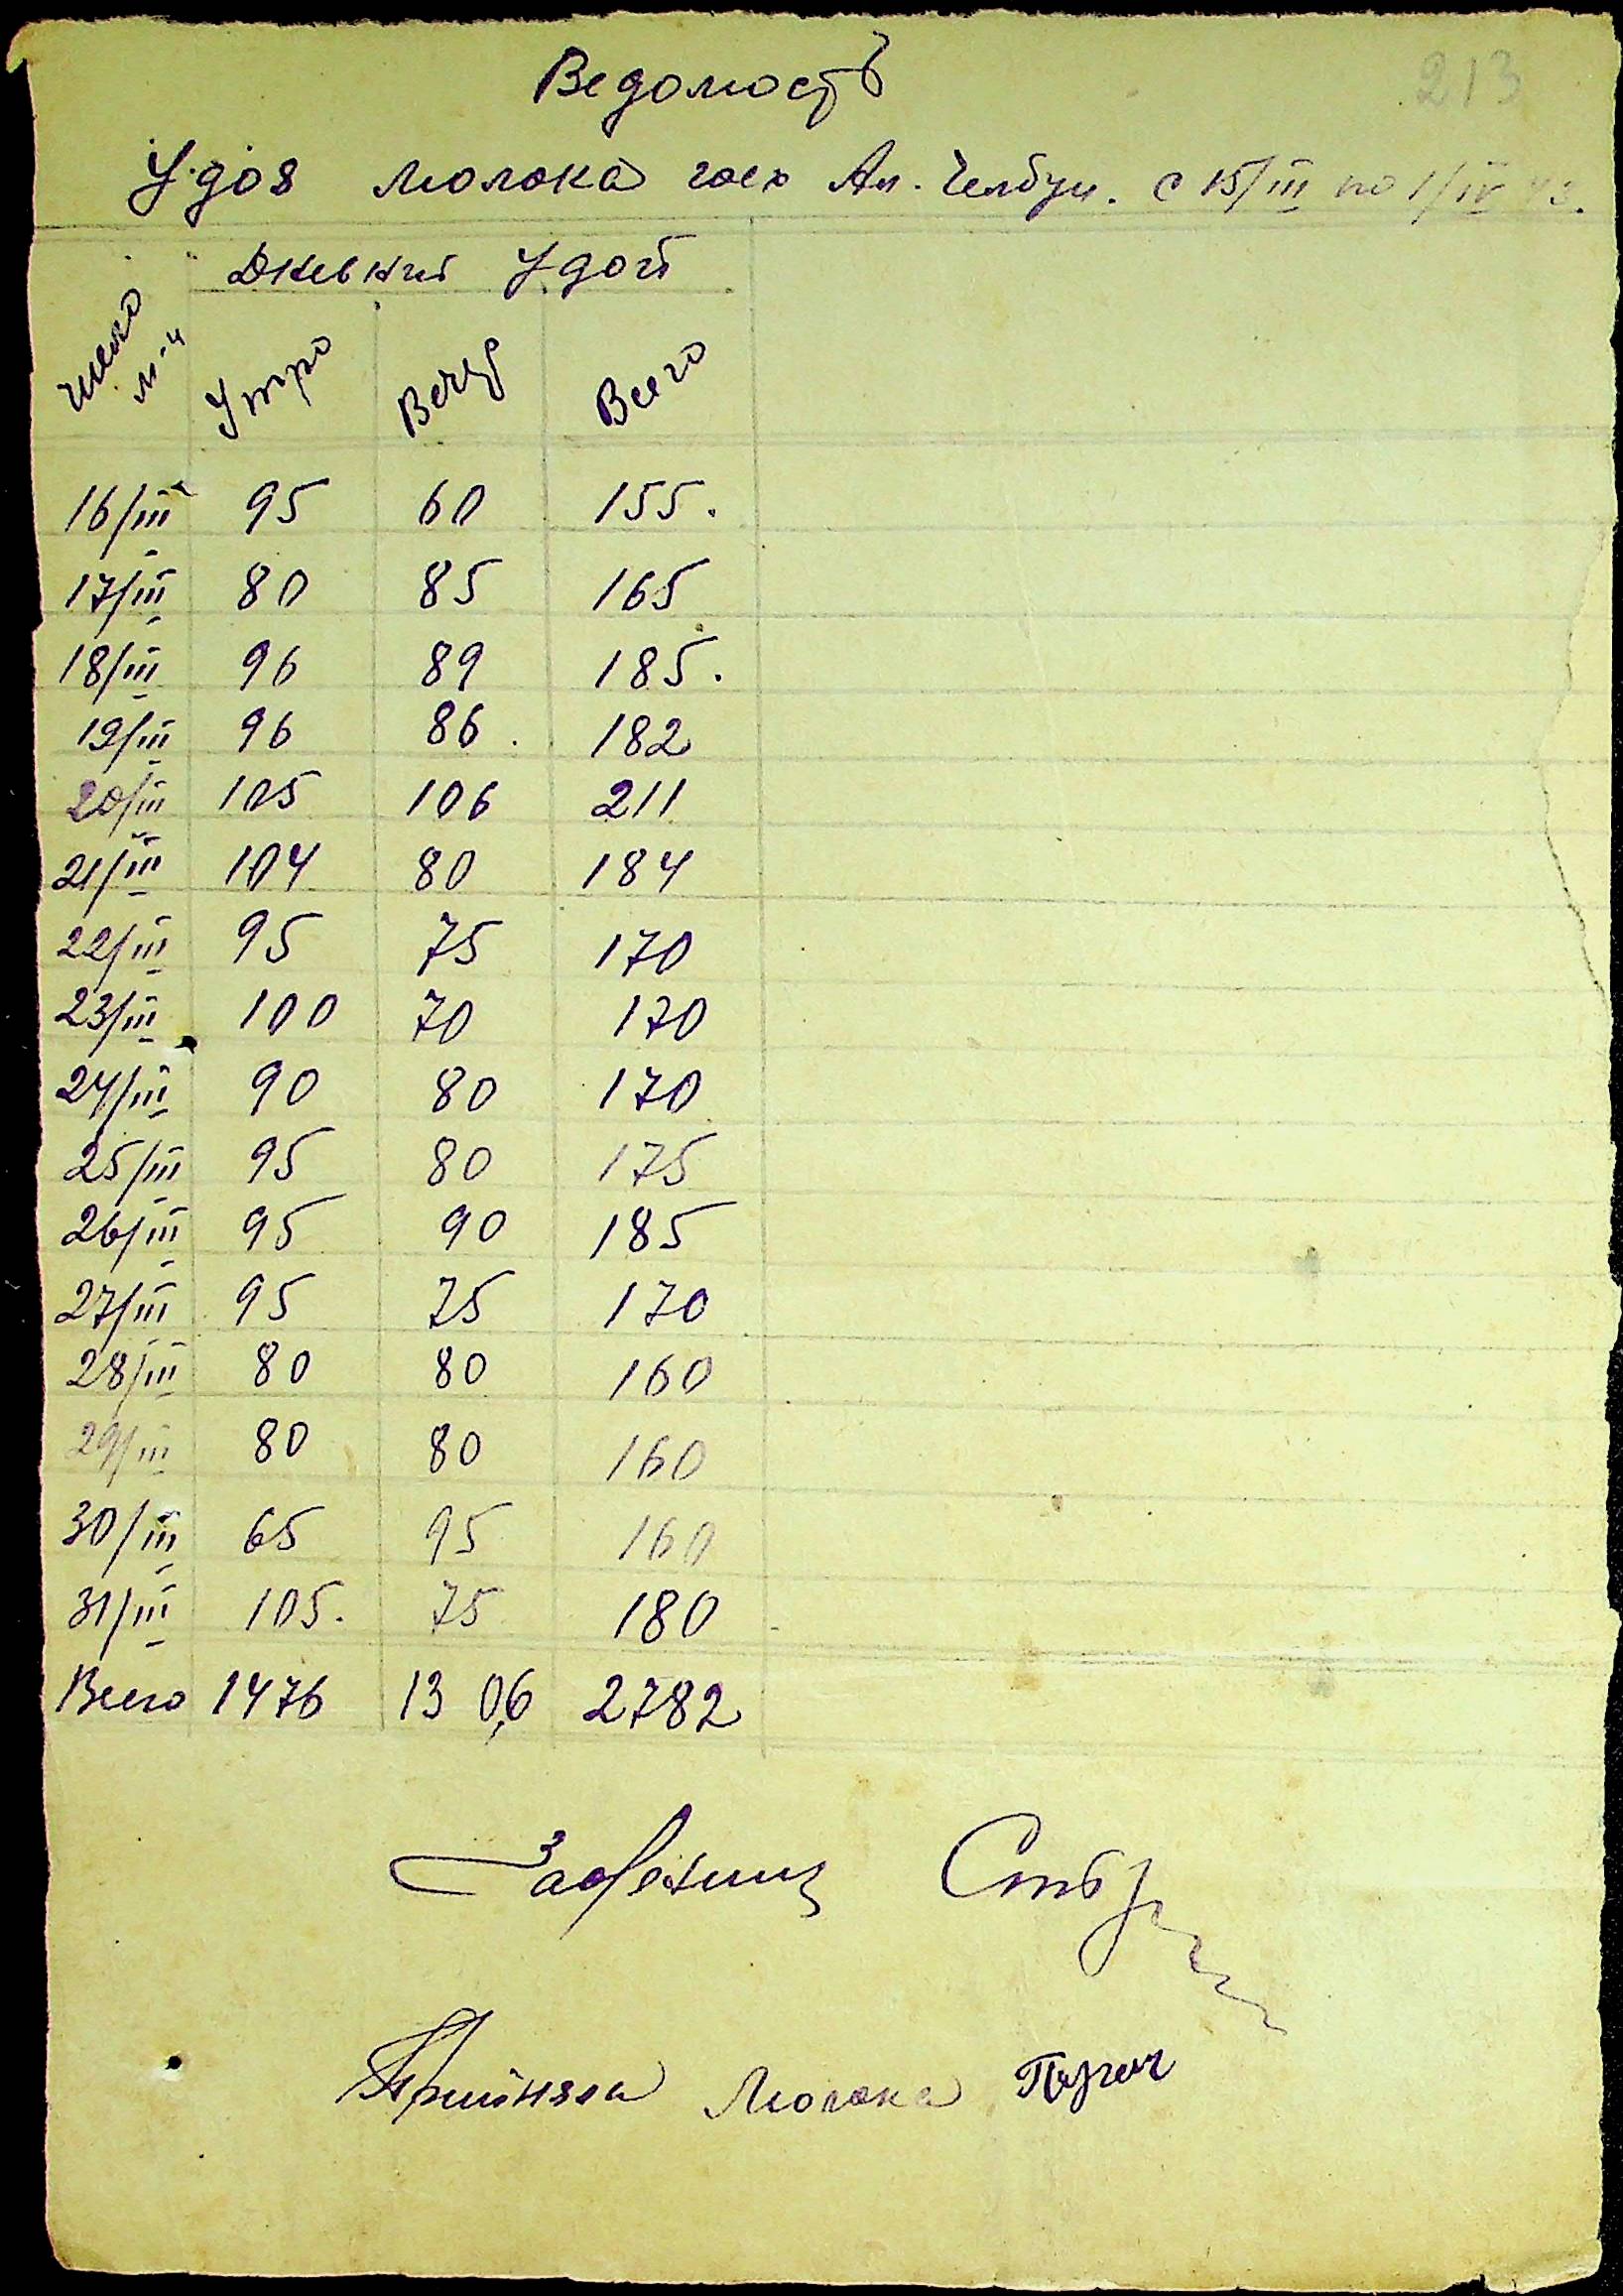 213
Ведомость
Удоя молока госх Ал. Челбун. с 15/III по 1/IV 43.
Число м-ц Дневний Удой
Утро Вечер Всего
16/III 95 60 155.
17/III 80 85 165
18/III 96 89 185.
19/III 96 86. 182
20/III 105 106 211
21/III 104 80 184
22/III 95 75 170
23/III 100 70 170
24/III 90 80 170
25/III 95 80 175
26/III 95 90 185
27/III 95 75 170
28/III 80 80 160
29/III 80 80 160
30/III 65 95 160
31/III 105. 75 180
Всего 1476 1306 2782
Приняла Молока